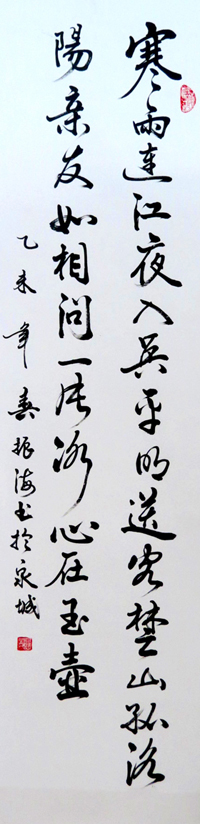 寒雨連江夜入吴平明送客楚山孤洛
陽亲友如相問一片冰心在玉壺
乙未年春振海书於泉城